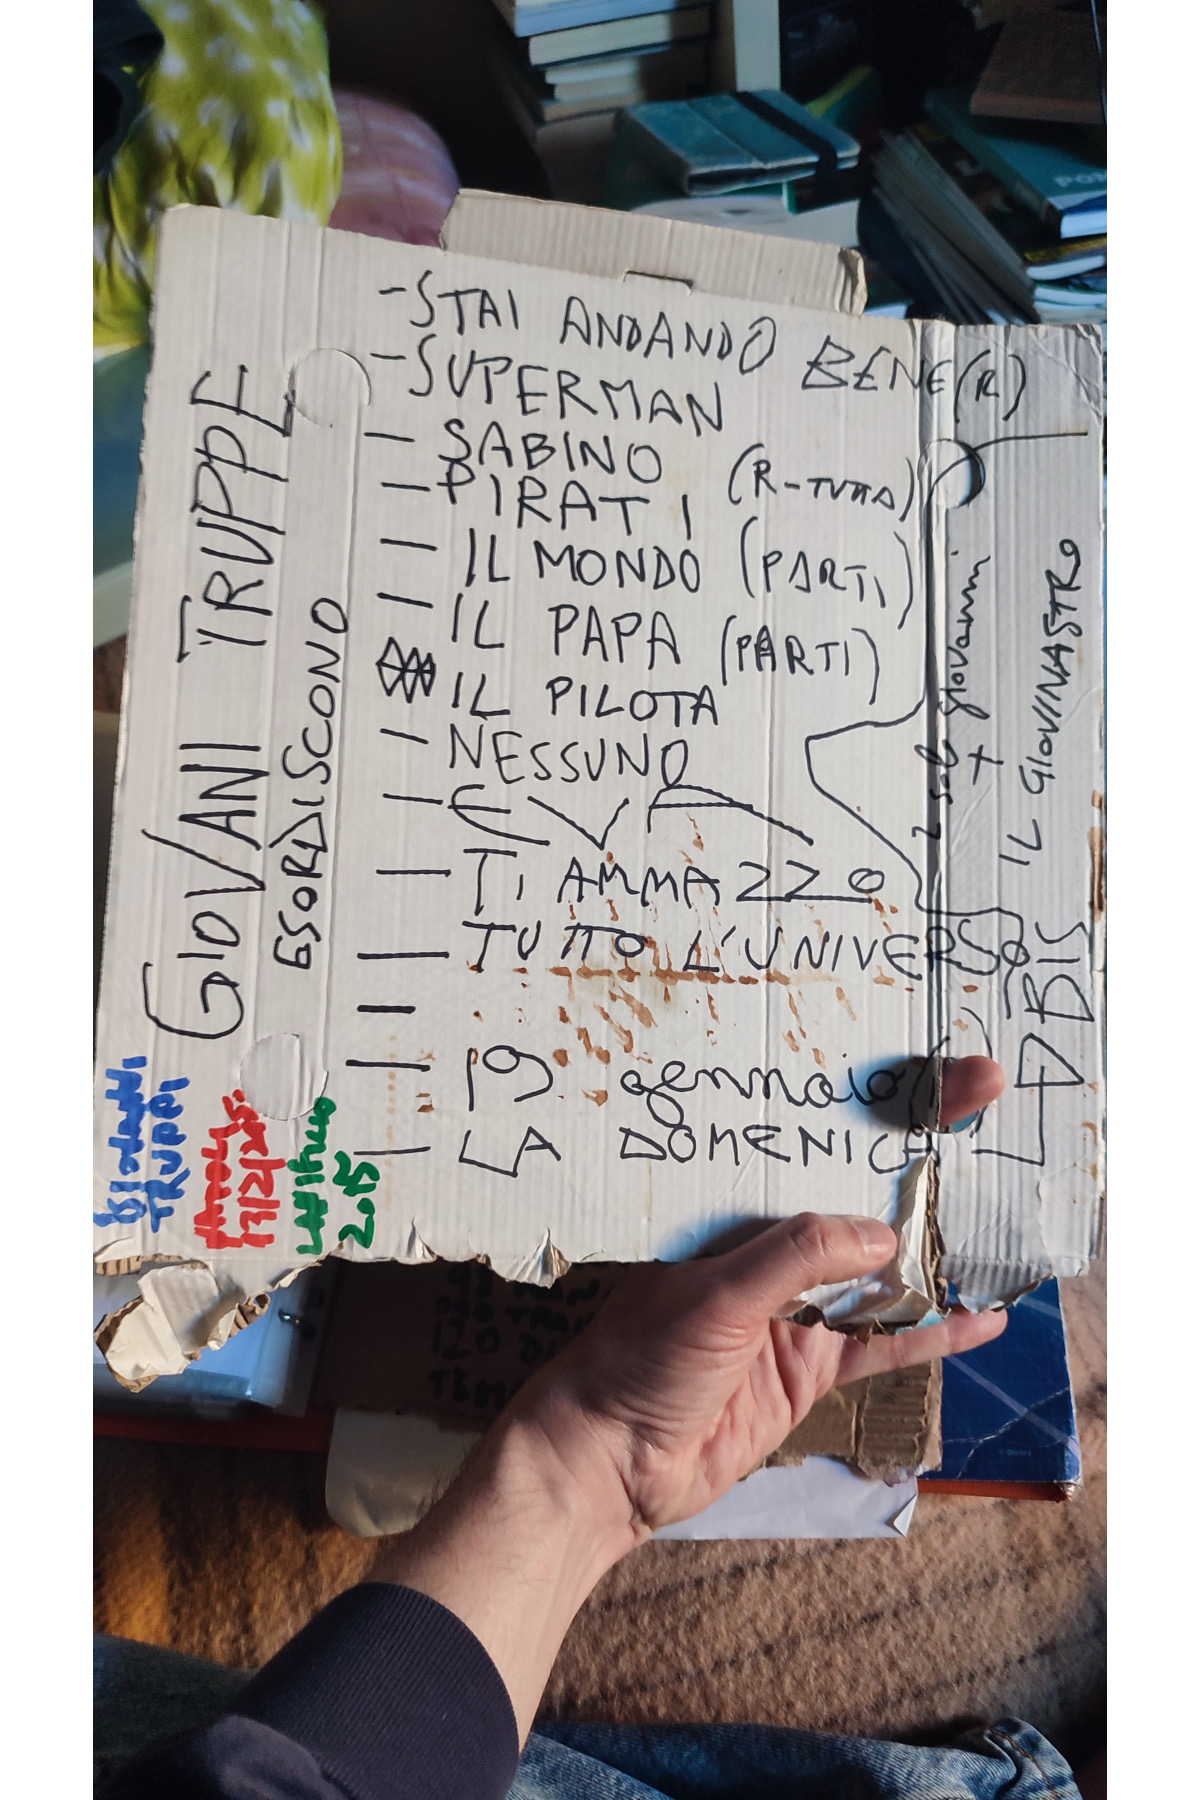 - STAI ANDANDO BENE (R)
- SUPERMAN
- SABINO
- PIRATI (R-TUTTA)
- IL MONDO (PARTI)
- IL PAPA (PARTI)
IL PILOTA
- NESSUNO
-
- TI AMMAZZO
- TUTTO L'UNIVERSO
-
- 19 gennaio
- LA DOMENICA
GIOVANI TRUPPE
ESORDISCONO
2 sol giovanni
+
IL GIOVINASTRO
BIS
TRUPPI
2015
© Disney